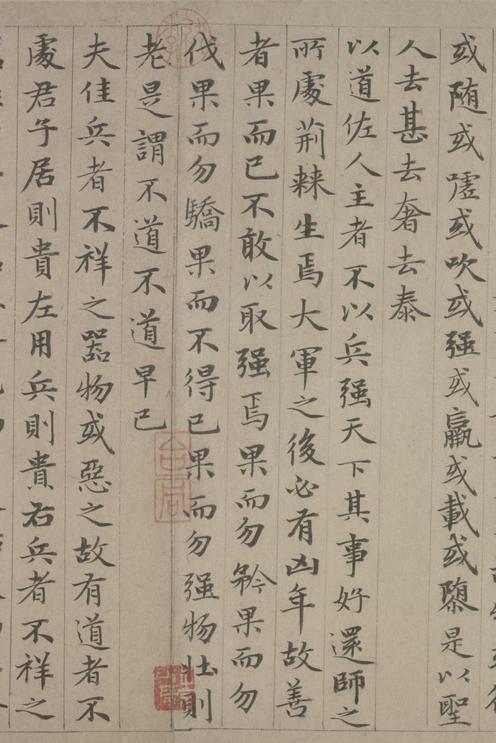 或随或嘘或吹或强或羸或載或隳是以聖
人去甚去奢去泰
以道佐人主者不以兵强天下其事好還師之
所處荆棘生焉大軍之後必有凶年故善
者果而已不敢以取强焉果而勿矜果而勿
伐果而勿驕果而不得已果而勿强物壮則
老是謂不道不道早已
夫佳兵者不祥之器物或惡之故有道者不
處君子居則貴左用兵則貴右兵者不祥之